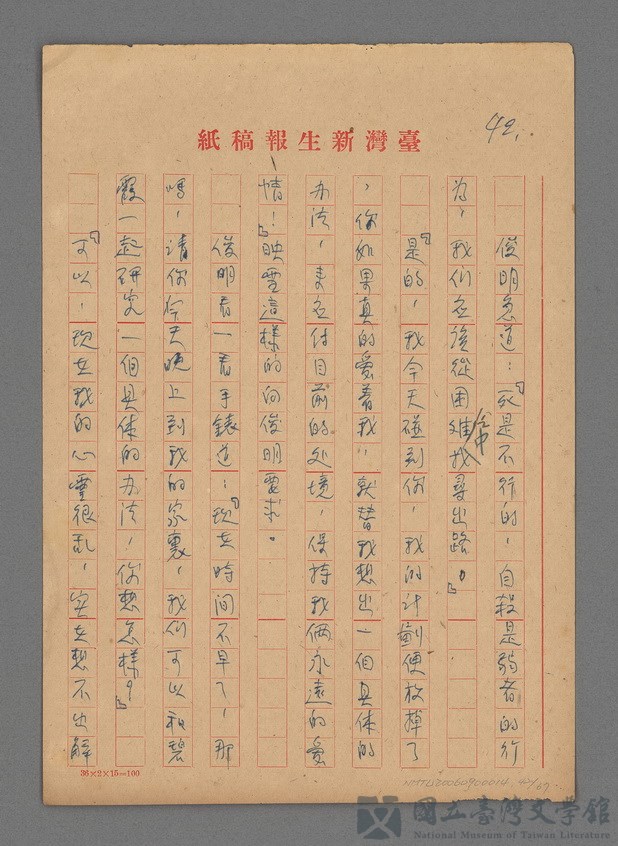 42.
紙稿報生新灣臺
俊明急道：「死是不行的，自殺是弱者的行
為，我們应該從困难之中找尋出路。」
「是的，我今天碰到你，我的计劃便放掉了
，你如果真的愛着我，就替我想出一個具体的
办法，来应付目前的处境，保持我倆永遠的愛
情！」映雪這樣的向俊明要求。
俊明看一看手錶道：「現在時间不早了，那
嗎，请你今天晚上到我的家裏，我们可以和碧
霞一起研究一個具体的办法，你想怎樣？」
「可以，現在我的心里很乱，实在想不出解
36×2×15=100
國立臺灣文學館
National Museum of Taiwan Literature